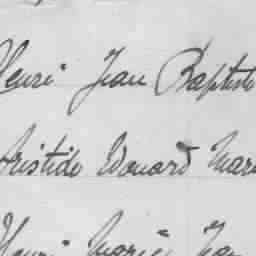 Henri Jean Baptiste
Aristide Edouard Marie
Henri Marie Jean